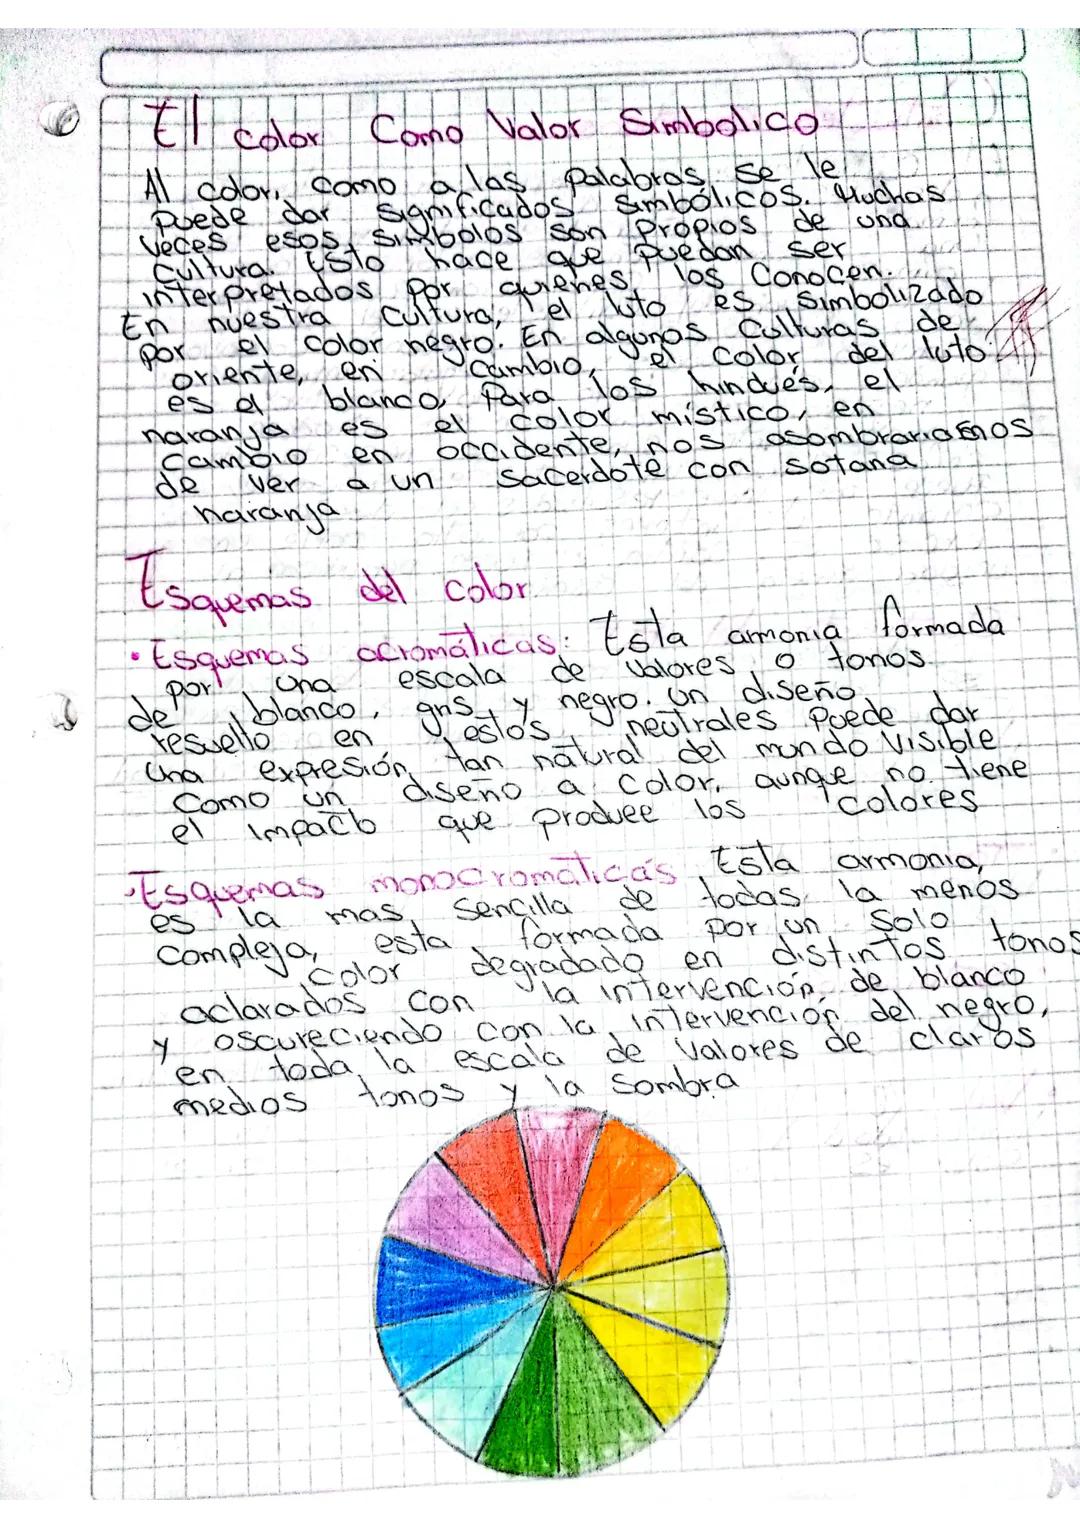 El color Como Valor Simbolico
Al color, como a las palabras se le
puede dar significados simbólicos. Muchas
veces esos simbolos son propios de una
cultura. Esto hace que puedan ser
interpretados por quienes los Conocen.
En nuestra cultura, el luto es simbolizado
por el color negro. En algunos culturas de
oriente, en cambio, el color del luto
es el blanco, Para los hindués, el
naranja es el color místico, en
cambio en occidente, nos asombrariamos
de ver a un sacerdote con sotana
naranja
Esquemas del color
• Esquemas acromáticas: Esta armonia formada
por una escala de valores o tonos
de blanco, gris y negro. Un diseño
resuelto en estos neutrales puede dar
una expresión tan natural del mundo visible
Como un diseño a color, aunque no tiene
el impacto que produce los colores
• Esquemas monocromáticas Esta armonia,
es la mas sencilla de todas la menos
compleja, esta formada por un solo
color degradado en distintos tonos
aclarados con la intervención de blanco
y oscureciendo con la intervención del negro,
en toda la escala de valores de claros
medios tonos y la sombra